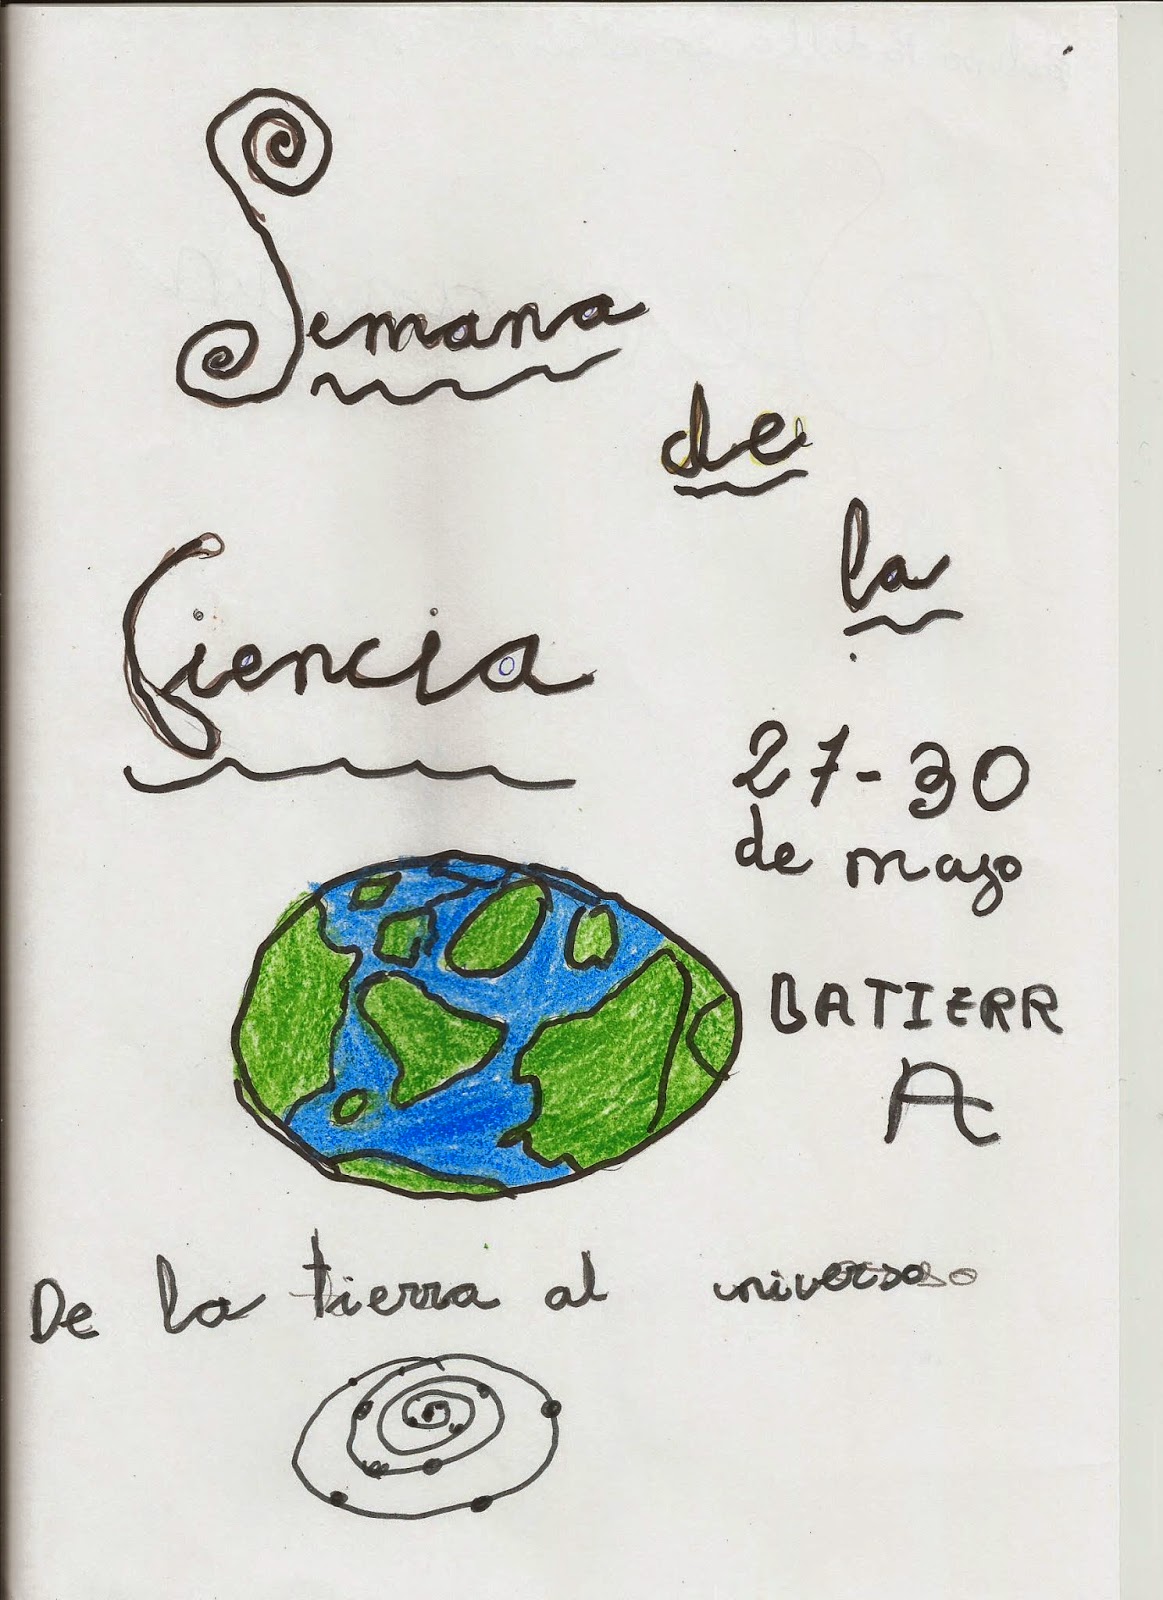 Semana
de
la
Ciencia
27-30
de mayo
BATIERR
A
De la tierra al universoso